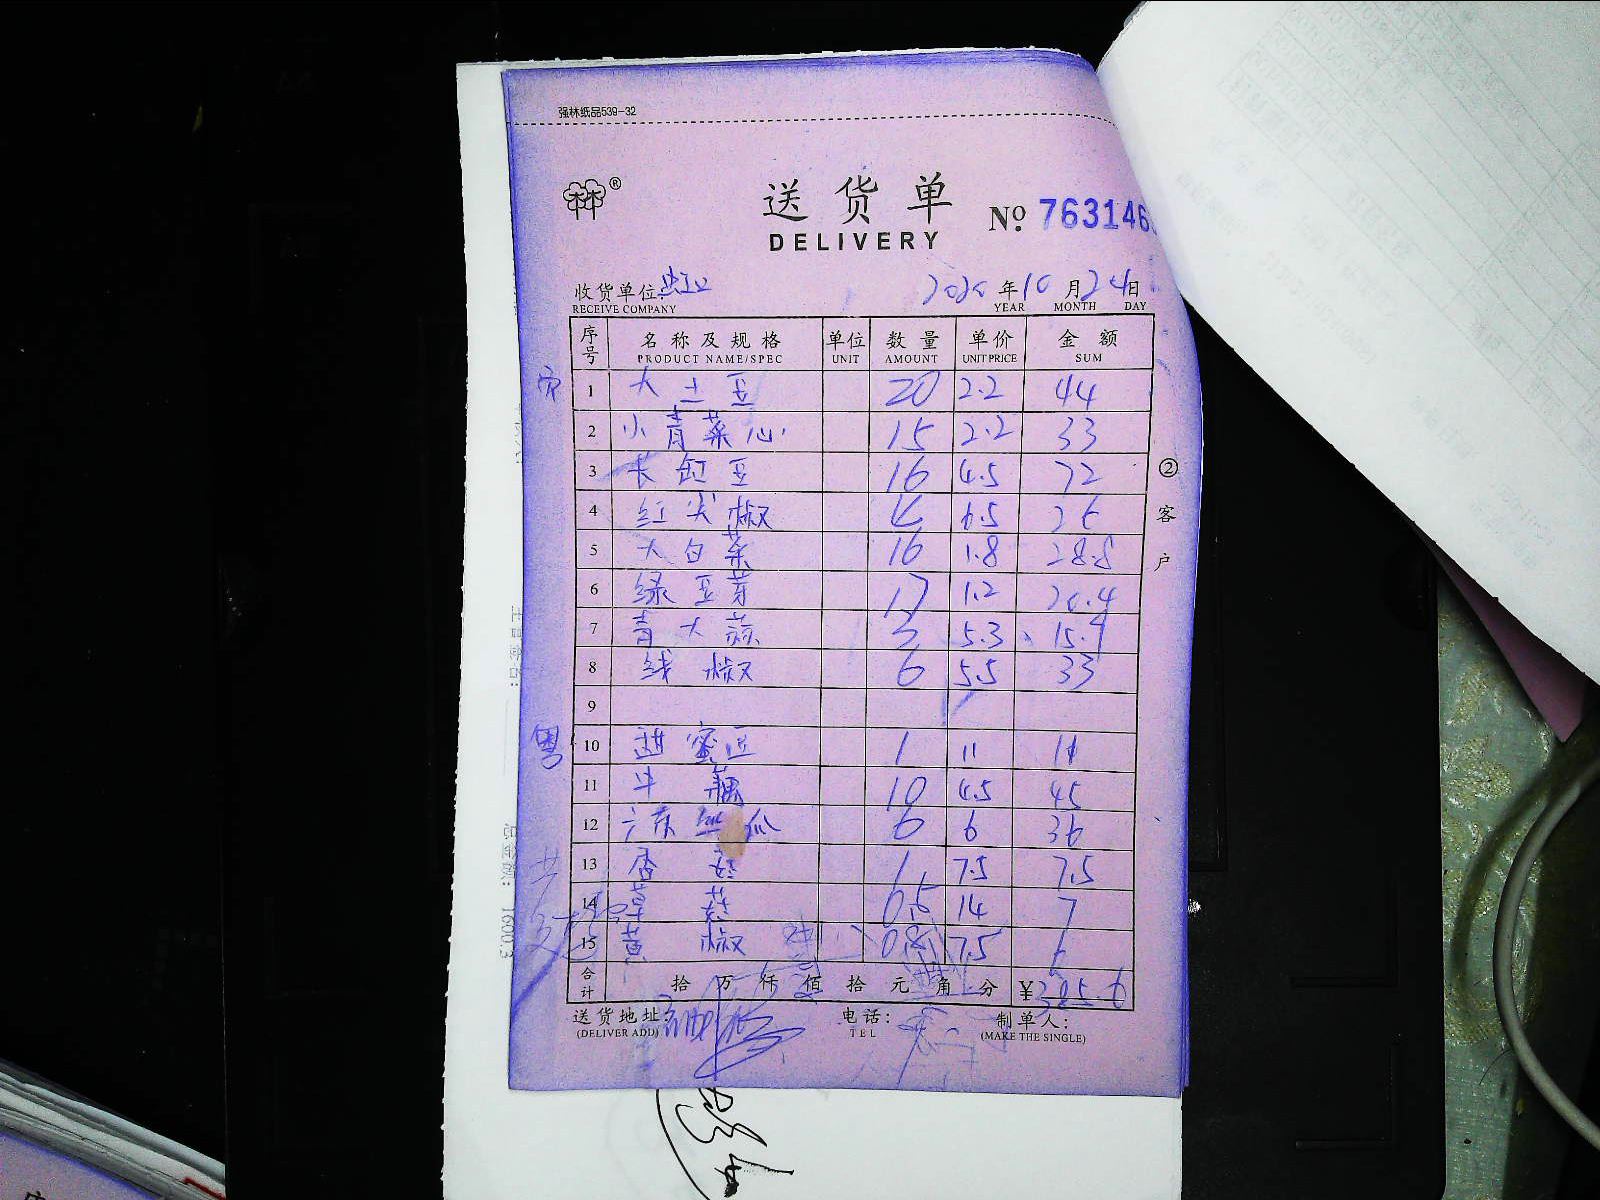 强林纸品539-32
®
送货单 № 763146
DELIVERY
收货单位: 2020 年 10 月 24 日
RECEIVE COMPANY YEAR MONTH DAY
序号 名称及规格 单位 数量 单价 金额
PRODUCT NAME/SPEC UNIT AMOUNT UNIT PRICE SUM
1 大土豆 20 2.2 44
2 小青菜心 15 2.2 33
3 长缸豆 16 4.5 72
4 红尖椒 4 6.5 26
5 大白菜 16 1.8 28.8
6 绿豆芽 17 1.2 20.4
7 青大蒜 3 5.3 15.9
8 线椒 6 5.5 33
9
粤 10 甜蜜豆 1 11 11
11 牛藕 10 4.5 45
12 广东丝瓜 6 6 36
13 香菇 1 7.5 7.5
14 草菇 0.5 14 7
15 黄椒 0.8 7.5 6
合计 拾 万 仟 佰 拾 元 角 分 ¥385.6
②客户
送货地址: 电话: 制单人:
(DELIVER ADD) TEL (MAKE THE SINGLE)
总金额: 1600.3